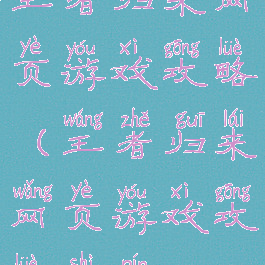 王者归来网
yè yóu xì gōng lüè
页游戏攻略
wáng zhě guī lái
(王者归来
wǎng yè yóu xì gōng
网页游戏攻
lüè shì pín